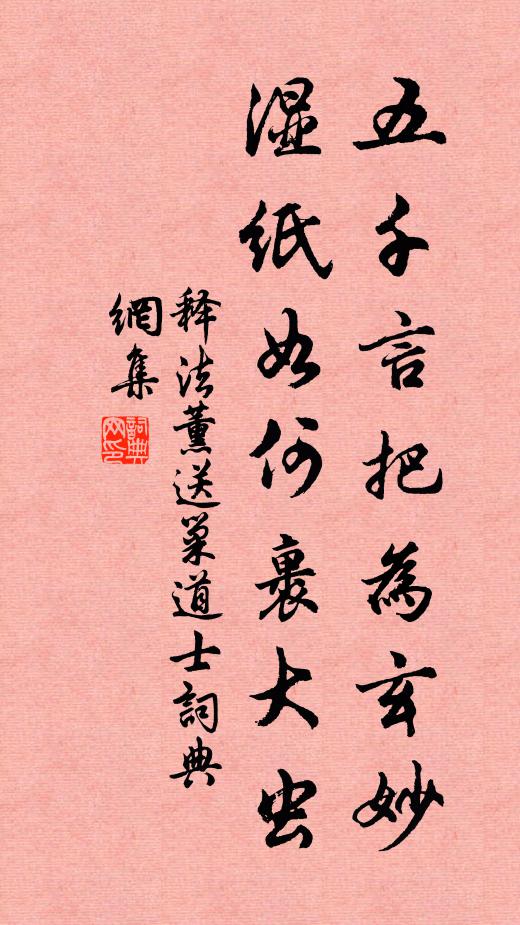 五千言把為玄妙
湿紙如何裹大虫
释法薰送巢道士詞典
網集
詞典
网印